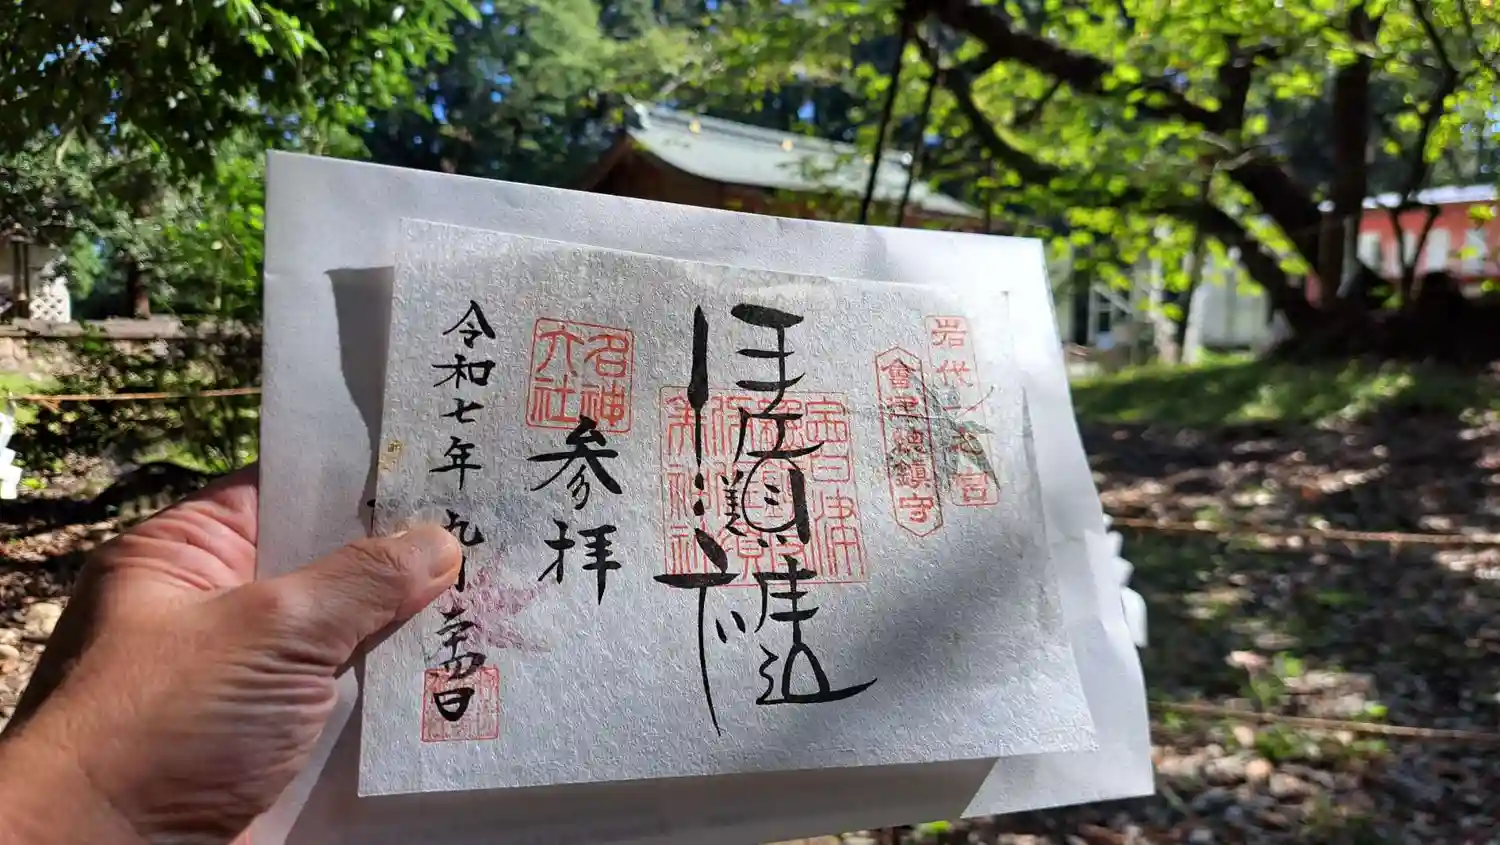 岩代二之宮
會津總鎮守
伊佐須美神社
名神大社
参拝
令和七年九月廿四日